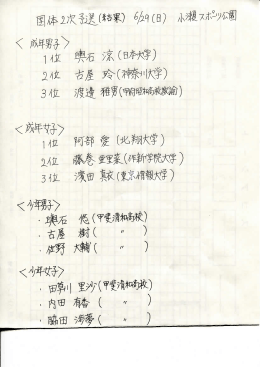 国体2次予選(結果) 6/29(日) 小瀬スポーツ公園
<成年男子>
1位 輿石 涼(日本大学)
2位 古屋 玲(神奈川大学)
3位 渡邉 雅男(甲府昭和高校教諭)
<成年女子>
1位 阿部 愛(北翔大学)
2位 藤巻 亜里菜(作新学院大学)
3位 濱田 真衣(東京情報大学)
<少年男子>
・輿石 悠(甲斐清和高校)
・古屋 樹( 〃 )
・佐野 大輔( 〃 )
<少年女子>
・田草川 里沙(甲斐清和高校)
・内田 有香( 〃 )
・脇田 海夢( 〃 )